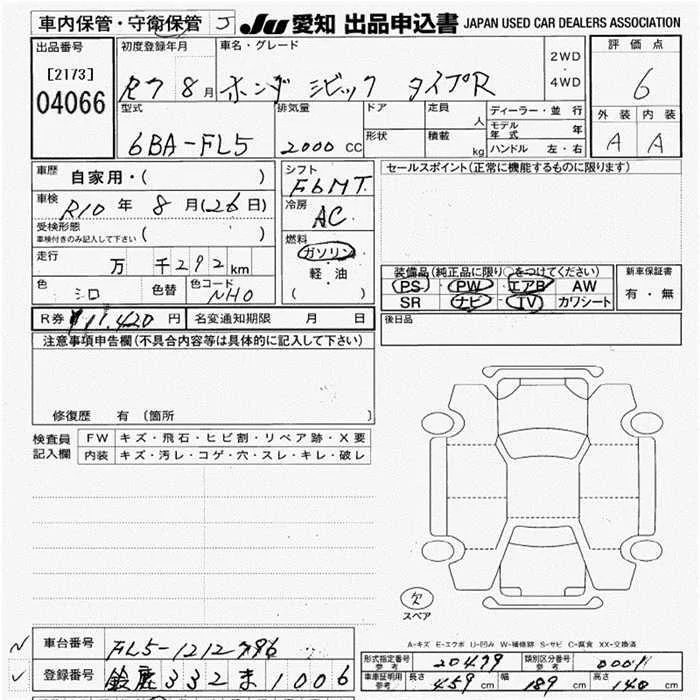 車内保管・守衛保管 J JU 愛知 出品申込書 JAPAN USED CAR DEALERS ASSOCIATION
出品番号 初度登録年月 車名・グレード 2WD 評価点
[2173] R7 8月 ホンダ シビック タイプR ・ 6
04066 4WD
型式 排気量 ドア 定員 人 ディーラー・並行 外装 内装
6BA-FL5 2000 cc 形状 積載 kg モデル年式 年 A A
ハンドル 左・右
車歴 自家用・( ) シフト F6MT. セールスポイント(正常に機能するものに限ります)
車検 R10 年 8 月 (26日) 冷房 AC
受検形態 ( )
車検付きのみ記入して下さい
燃料
走行 万 千292km ガソリン 装備品(純正品に限り○をつけてください) 新車保証書
軽・油 PS PW エアB AW 有・無
色 シロ 色替 色コード NH0 ( ) SR ナビ TV カワシート
R券 ¥11,420 円 名変通知期限 月 日 後日品
注意事項申告欄(不具合内容等は具体的に記入して下さい)
修復歴 有 (箇所
検査員 FW キズ・飛石・ヒビ割・リペア跡・X要
記入欄 内装 キズ・汚レ・コゲ・穴・スレ・キレ・破レ
欠
スペア
A-キズ E-エクボ U-凹み W-補修跡 S-サビ C-腐食 XX-交換済
車台番号 FL5-1212796 形式指定番号 参考 20479 類別区分番号 参考
登録番号 鈴鹿 332 ま 1006 車庫証明用 参考 長さ 459 cm 幅 189 cm 高さ 140 cm